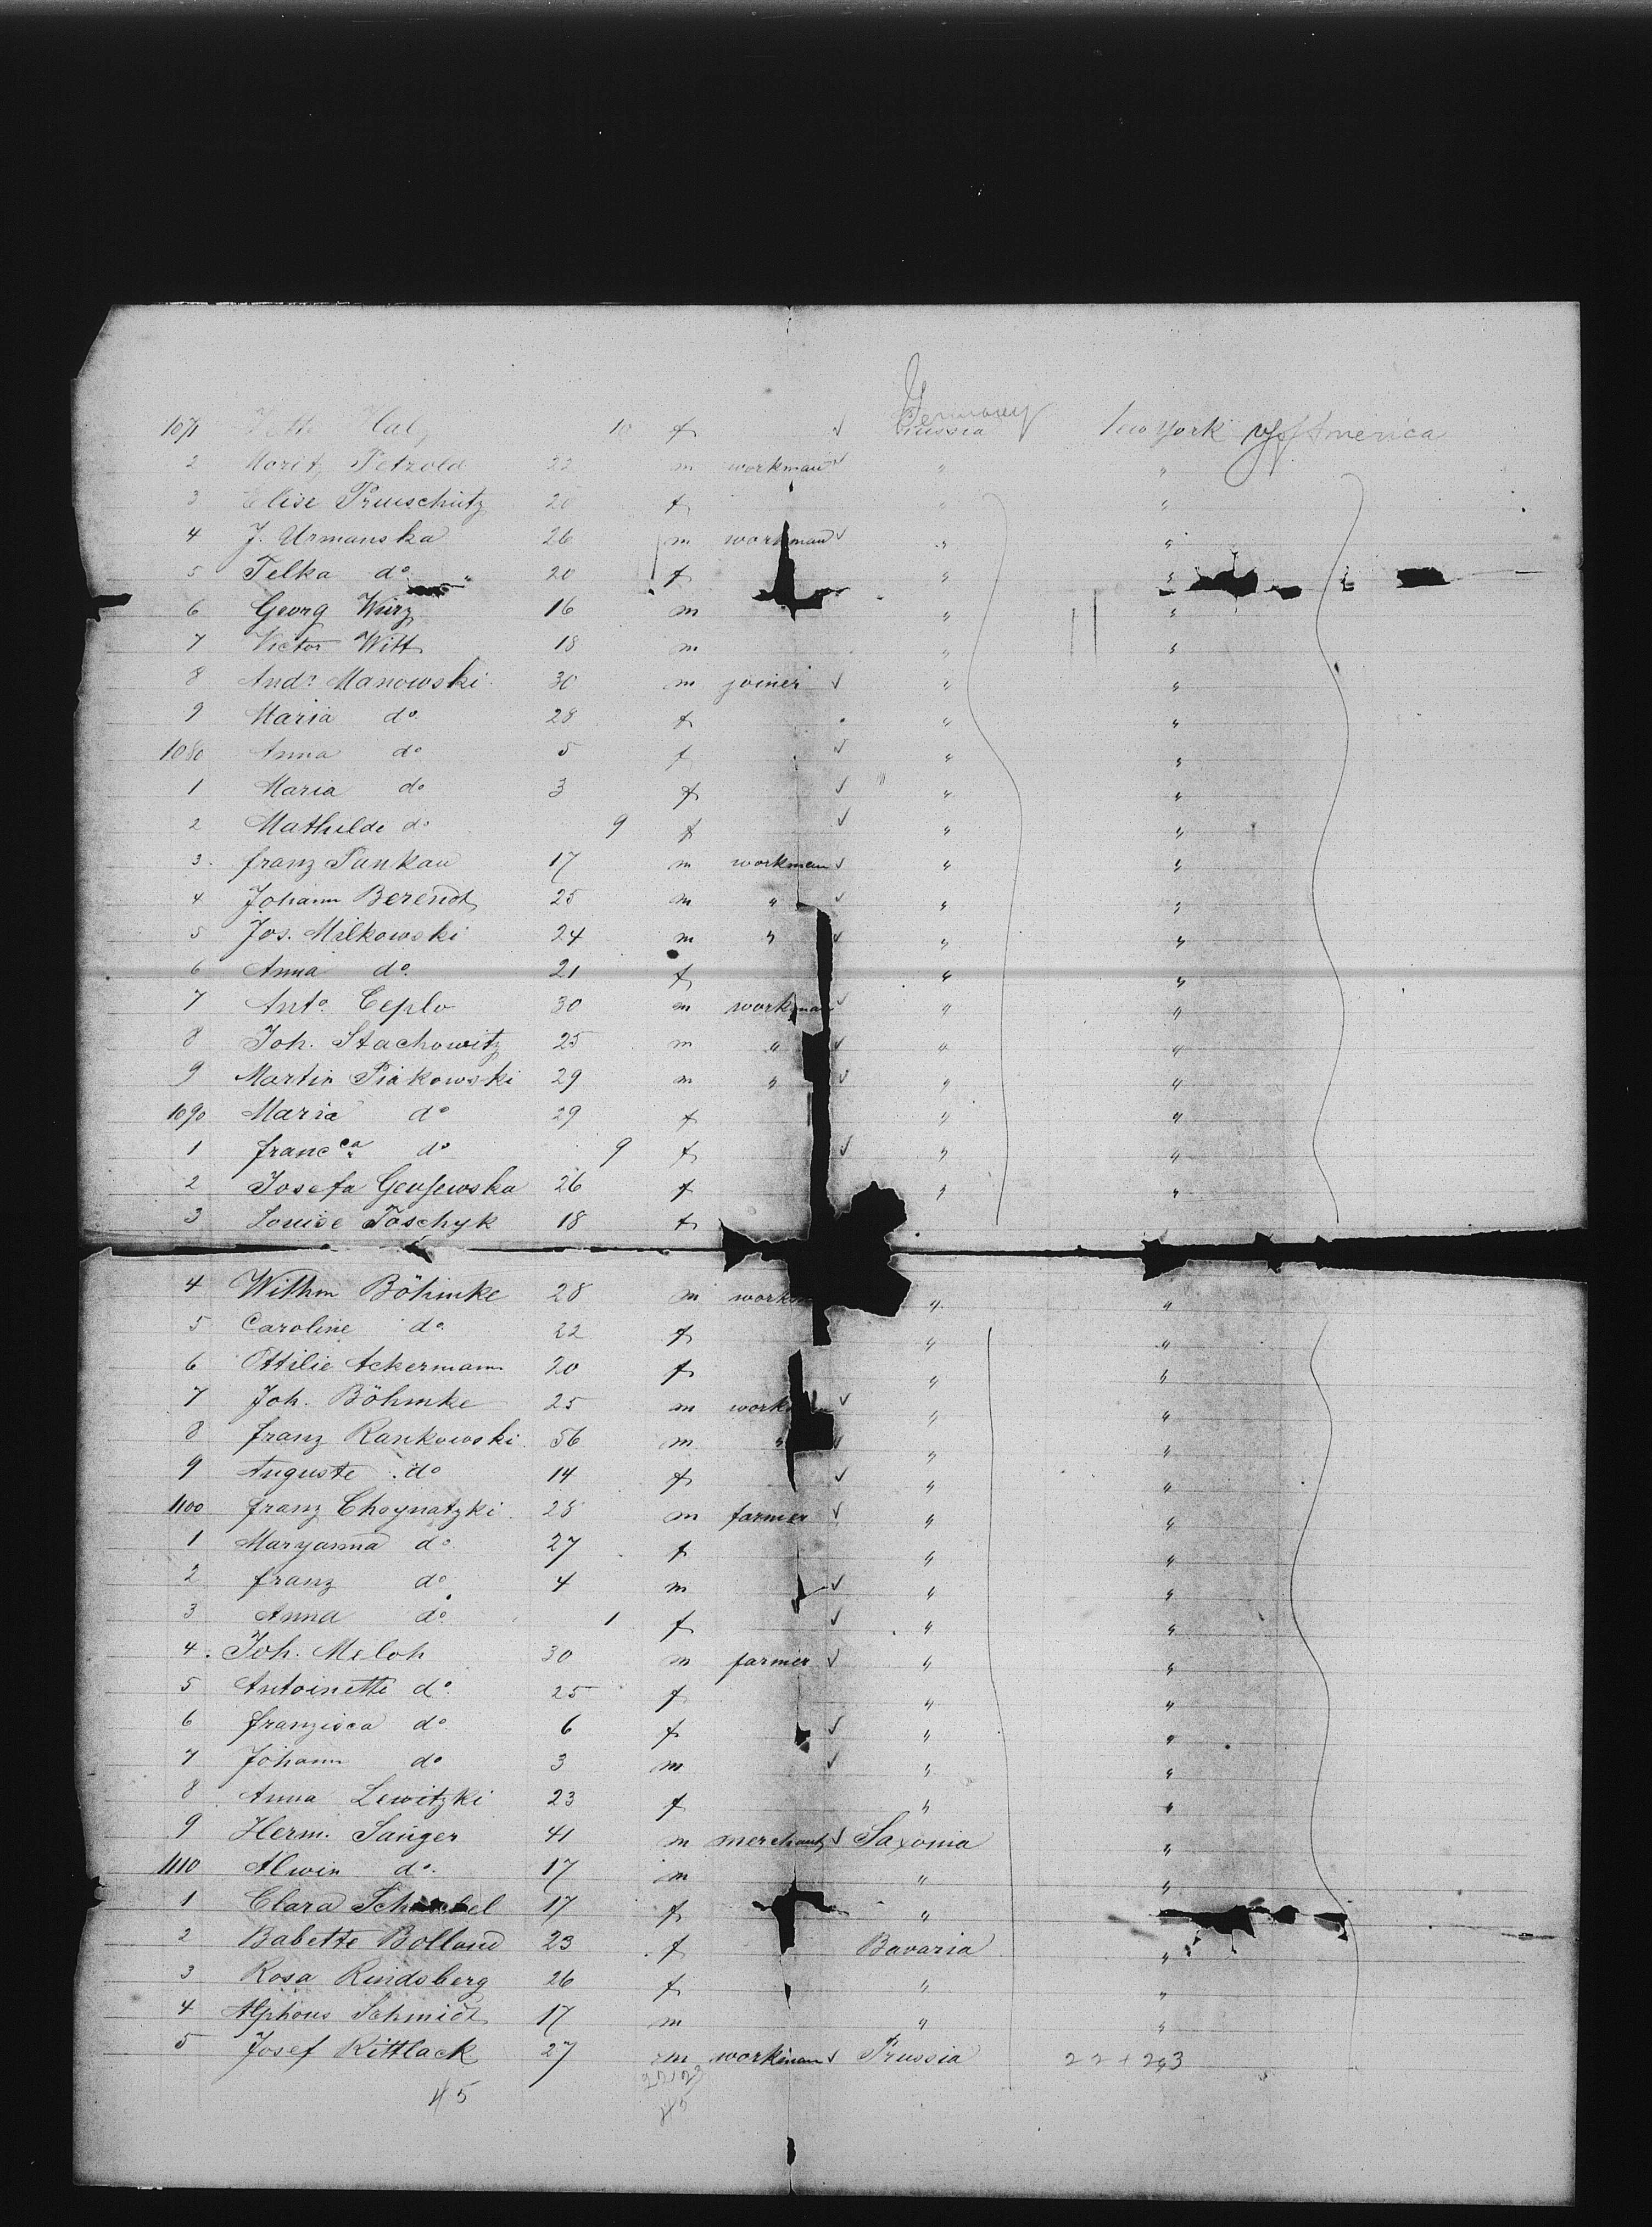 Germany
1071 10 f ✓ Prussia New York U S of America
2 Moritz Petzold 22 m workman ✓ " "
3 Elise Prueschütz 20 f " "
4 J. Urmanska 26 m workman ✓ " "
5 Telka do 20 f " "
6 Georg Wirz 16 m " "
7 Victor Witt 18 m " "
8 Andr. Manowski 30 m joiner ✓ " "
9 Maria do 28 f " "
1080 Anna do 5 f ✓ " "
1 Maria do 3 f ✓ " "
2 Mathilde do 9 f ✓ " "
3 franz Pankau 17 m workman ✓ " "
4 Johann Berendt 25 m " ✓ " "
5 Jos. Milkowski 24 m " ✓ " "
6 Anna do 21 f " "
7 Anto. Ceplo 30 m workman ✓ " "
8 Joh. Stachowitz 25 m " ✓ " "
9 Martin Piakowski 29 m " ✓ " "
1090 Maria do 29 f " "
1 franc.ca do 9 f ✓ " "
2 Josefa 26 f " "
3 Louise Toschyk 18 f
4 Withm Böhmke 28 m " "
5 Caroline do 22 f " "
6 Ottilie Ackermann 20 f " "
7 Joh. Böhmke 25 m ✓ " "
8 franz Rankowski 56 m " ✓ " "
9 Auguste do 14 f ✓ " "
1100 franz Choynatzki 28 m farmer ✓ " "
1 Maryanna do 27 f " "
2 franz do 4 m ✓ " "
3 Anna do 1 f ✓ " "
4 Joh. Meloh 30 m farmer ✓ " "
5 Antoinette do 25 f " "
6 franzisca do 6 f ✓ " "
7 Johann do 3 m ✓ " "
8 Anna Lewitzki 23 f " "
9 Herm. Sänger 41 m merchant ✓ Saxonia "
1110 Alwin do 17 m " "
1 Clara 17 f " "
2 Babette Bolland 23 f Bavaria "
3 Rosa Rindsberg 26 f " "
4 Alphons Schmidt 17 m " "
5 Josef Kittlack 27 m workman ✓ Prussia 22 + 23
45 22/23
45